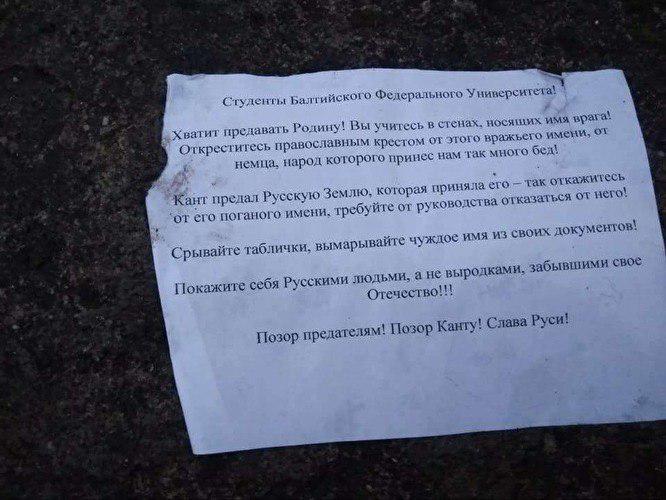 Студенты Балтийского Федерального Университета!
Хватит предавать Родину! Вы учитесь в стенах, носящих имя врага!
Откреститесь православным крестом от этого вражьего имени, от
немца, народ которого принес нам так много бед!
Кант предал Русскую Землю, которая приняла его – так откажитесь
от его поганого имени, требуйте от руководства отказаться от него!
Срывайте таблички, вымарывайте чуждое имя из своих документов!
Покажите себя Русскими людьми, а не выродками, забывшими свое
Отечество!!!
Позор предателям! Позор Канту! Слава Руси!